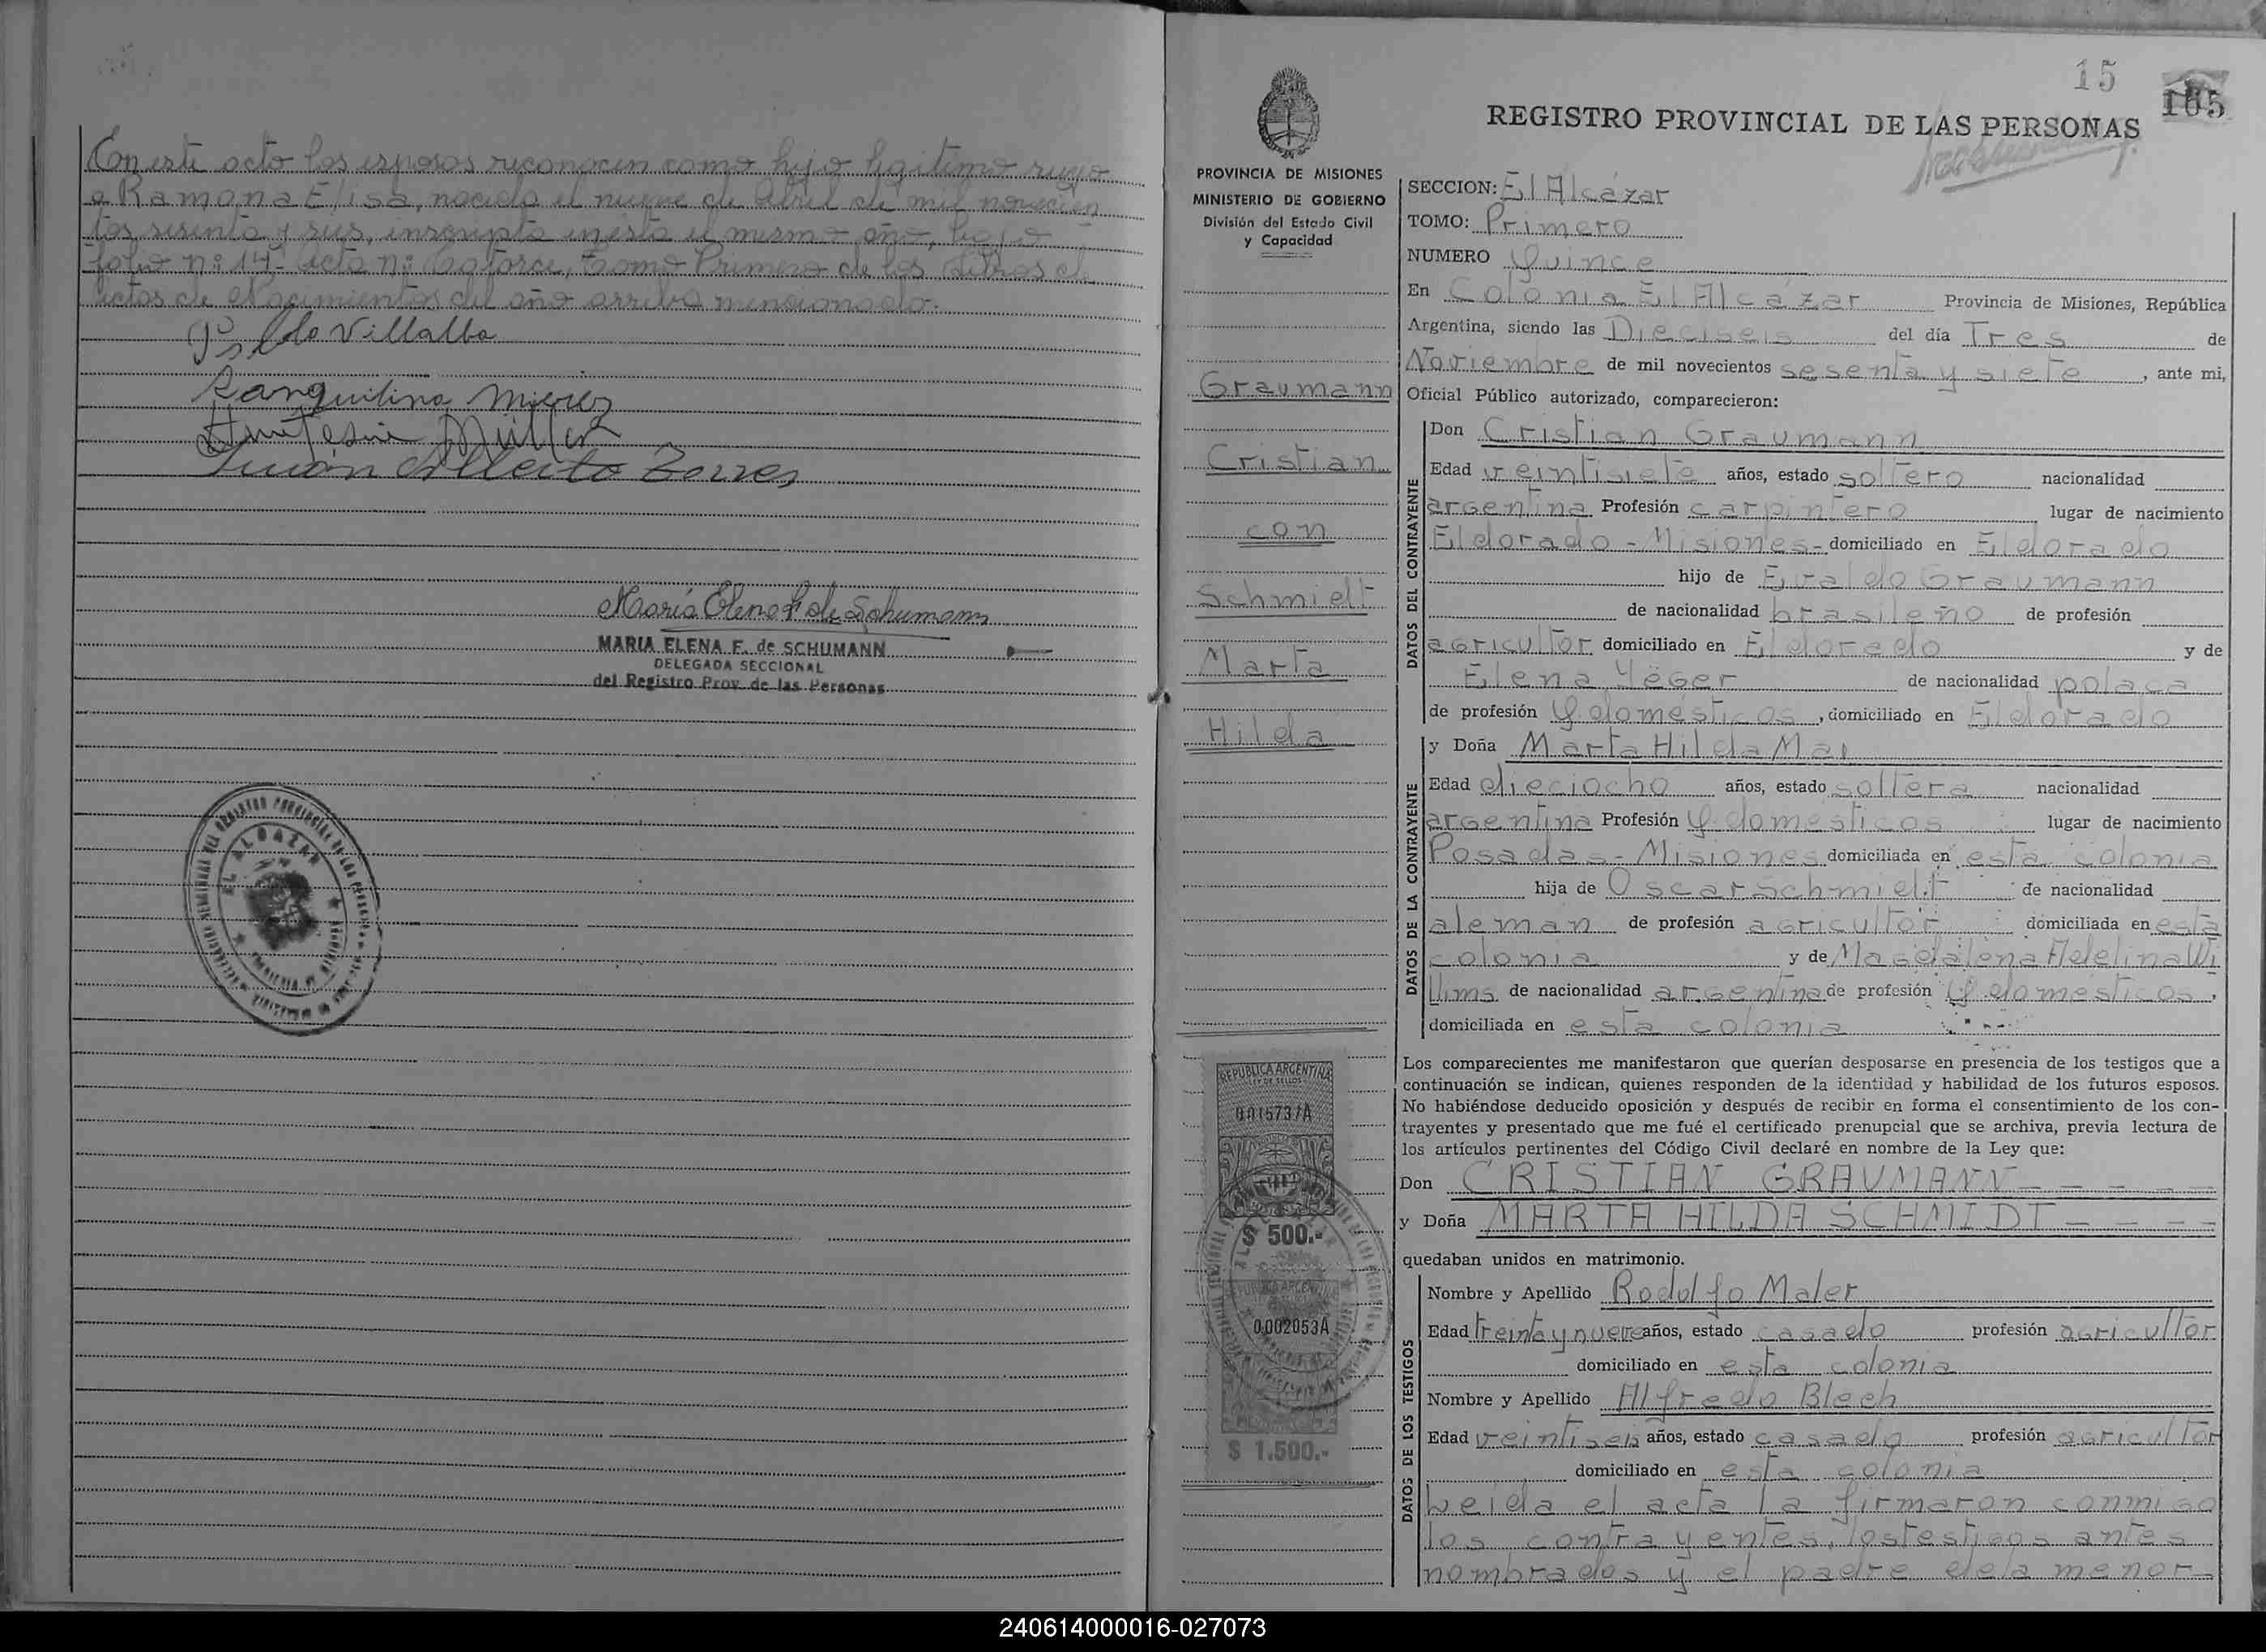 En este acto los esposos reconocen como hijo legitimo suyo
a Ramona Elisa, nacida el nueve de Abril de mil novecien
tos sesenta y seis, inscripta en esta el mismo año, bajo
folio n: 14- acta n: Catorce, tomo Primero de los Libros de
actas de Nacimientos del año arriba mencionado.
Villalba
Ranquilina Mierez
Müller
Juan Alberto Torres
María Elena F. de Schumann
MARIA ELENA F. de SCHUMANN
DELEGADA SECCIONAL
del Registro Prov. de las Personas
EL ALCAZAR
15
165
REGISTRO PROVINCIAL DE LAS PERSONAS
PROVINCIA DE MISIONES
MINISTERIO DE GOBIERNO
División del Estado Civil
y Capacidad
Graumann
Cristian
con
Schmidt
Marta
Hilda
REPUBLICA ARGENTINA
LEY DE SELLOS
$ 500.-
0,002053A
$ 1.500.-
SECCION: El Alcázar
TOMO: Primero
NUMERO Quince
En Colonia El Alcázar Provincia de Misiones, República
Argentina, siendo las Dieciseis del día Tres de
Noviembre de mil novecientos sesenta y siete, ante mi,
Oficial Público autorizado, comparecieron:
DATOS DEL CONTRAYENTE
Don Cristian Graumann
Edad veintisiete años, estado soltero nacionalidad
argentina Profesión carpintero lugar de nacimiento
Eldorado - Misiones - domiciliado en Eldorado
hijo de Evaldo Graumann
de nacionalidad brasileño de profesión
agricultor domiciliado en Eldorado y de
Elena Yëger de nacionalidad polaca
de profesión Q. domésticos, domiciliado en Eldorado
DATOS DE LA CONTRAYENTE
y Doña Marta Hilda Mar
Edad dieciocho años, estado soltera nacionalidad
argentina Profesión Q. domesticos lugar de nacimiento
Posadas - Misiones domiciliada en esta colonia
hija de Oscar Schmidt de nacionalidad
aleman de profesión agricultor domiciliada en esta
colonia y de Magdalena Adelina Wi
llims de nacionalidad argentina de profesión Q. domesticos,
domiciliada en esta colonia
Los comparecientes me manifestaron que querían desposarse en presencia de los testigos que a
continuación se indican, quienes responden de la identidad y habilidad de los futuros esposos.
No habiéndose deducido oposición y después de recibir en forma el consentimiento de los con-
trayentes y presentado que me fué el certificado prenupcial que se archiva, previa lectura de
los artículos pertinentes del Código Civil declaré en nombre de la Ley que:
Don CRISTIAN GRAUMANN - - - - -
y Doña MARTA HILDA SCHMIDT - - - -
quedaban unidos en matrimonio.
DATOS DE LOS TESTIGOS
Nombre y Apellido Rodolfo Maler
Edad treinta y nueve años, estado casado profesión agricultor
domiciliado en esta colonia
Nombre y Apellido Alfredo Blech
Edad veintiseis años, estado casado profesión agricultor
domiciliado en esta colonia
Leida el acta la firmaron conmigo
los contrayentes, los testigos antes
nombrados y el padre de la menor-
240614000016-027073